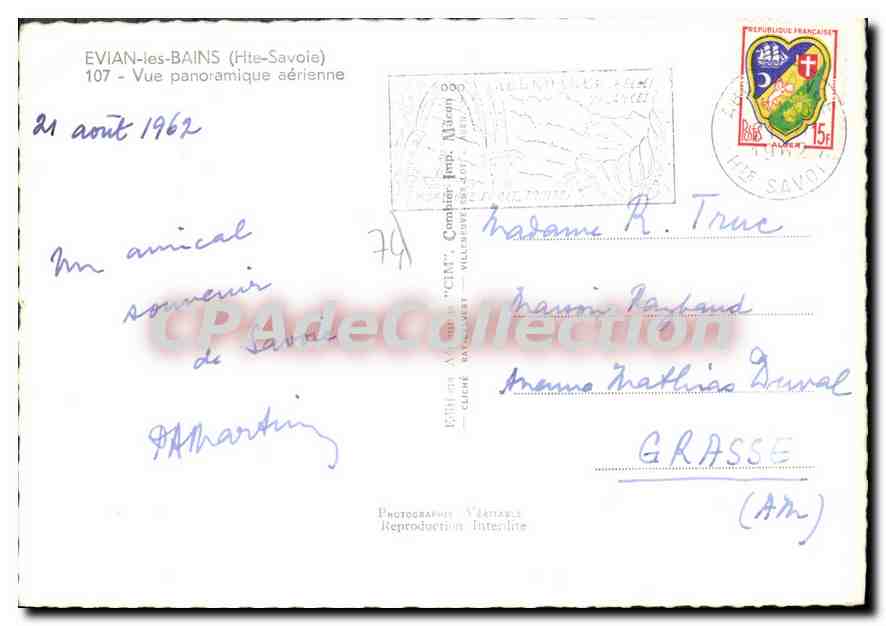 EVIAN-les-BAINS (Hte-Savoie)
107 - Vue panoramique aérienne
21 août 1962
Un amical
souvenir
de Savoie
PAMartin
74
"CIM". Combier Imp. Mâcon
CLICHÉ RAY-DELVERT — VILLENEUVE-SUR-LOT
REPUBLIQUE FRANÇAISE
POSTES
15F
ALGER
1962
Hte SAVOIE
Madame R. Truc
Maison Raybaud
Avenue Mathias Duval
GRASSE
(AM)
PHOTOGRAPHIE VÉRITABLE
Reproduction Interdite
CPAdeCollection